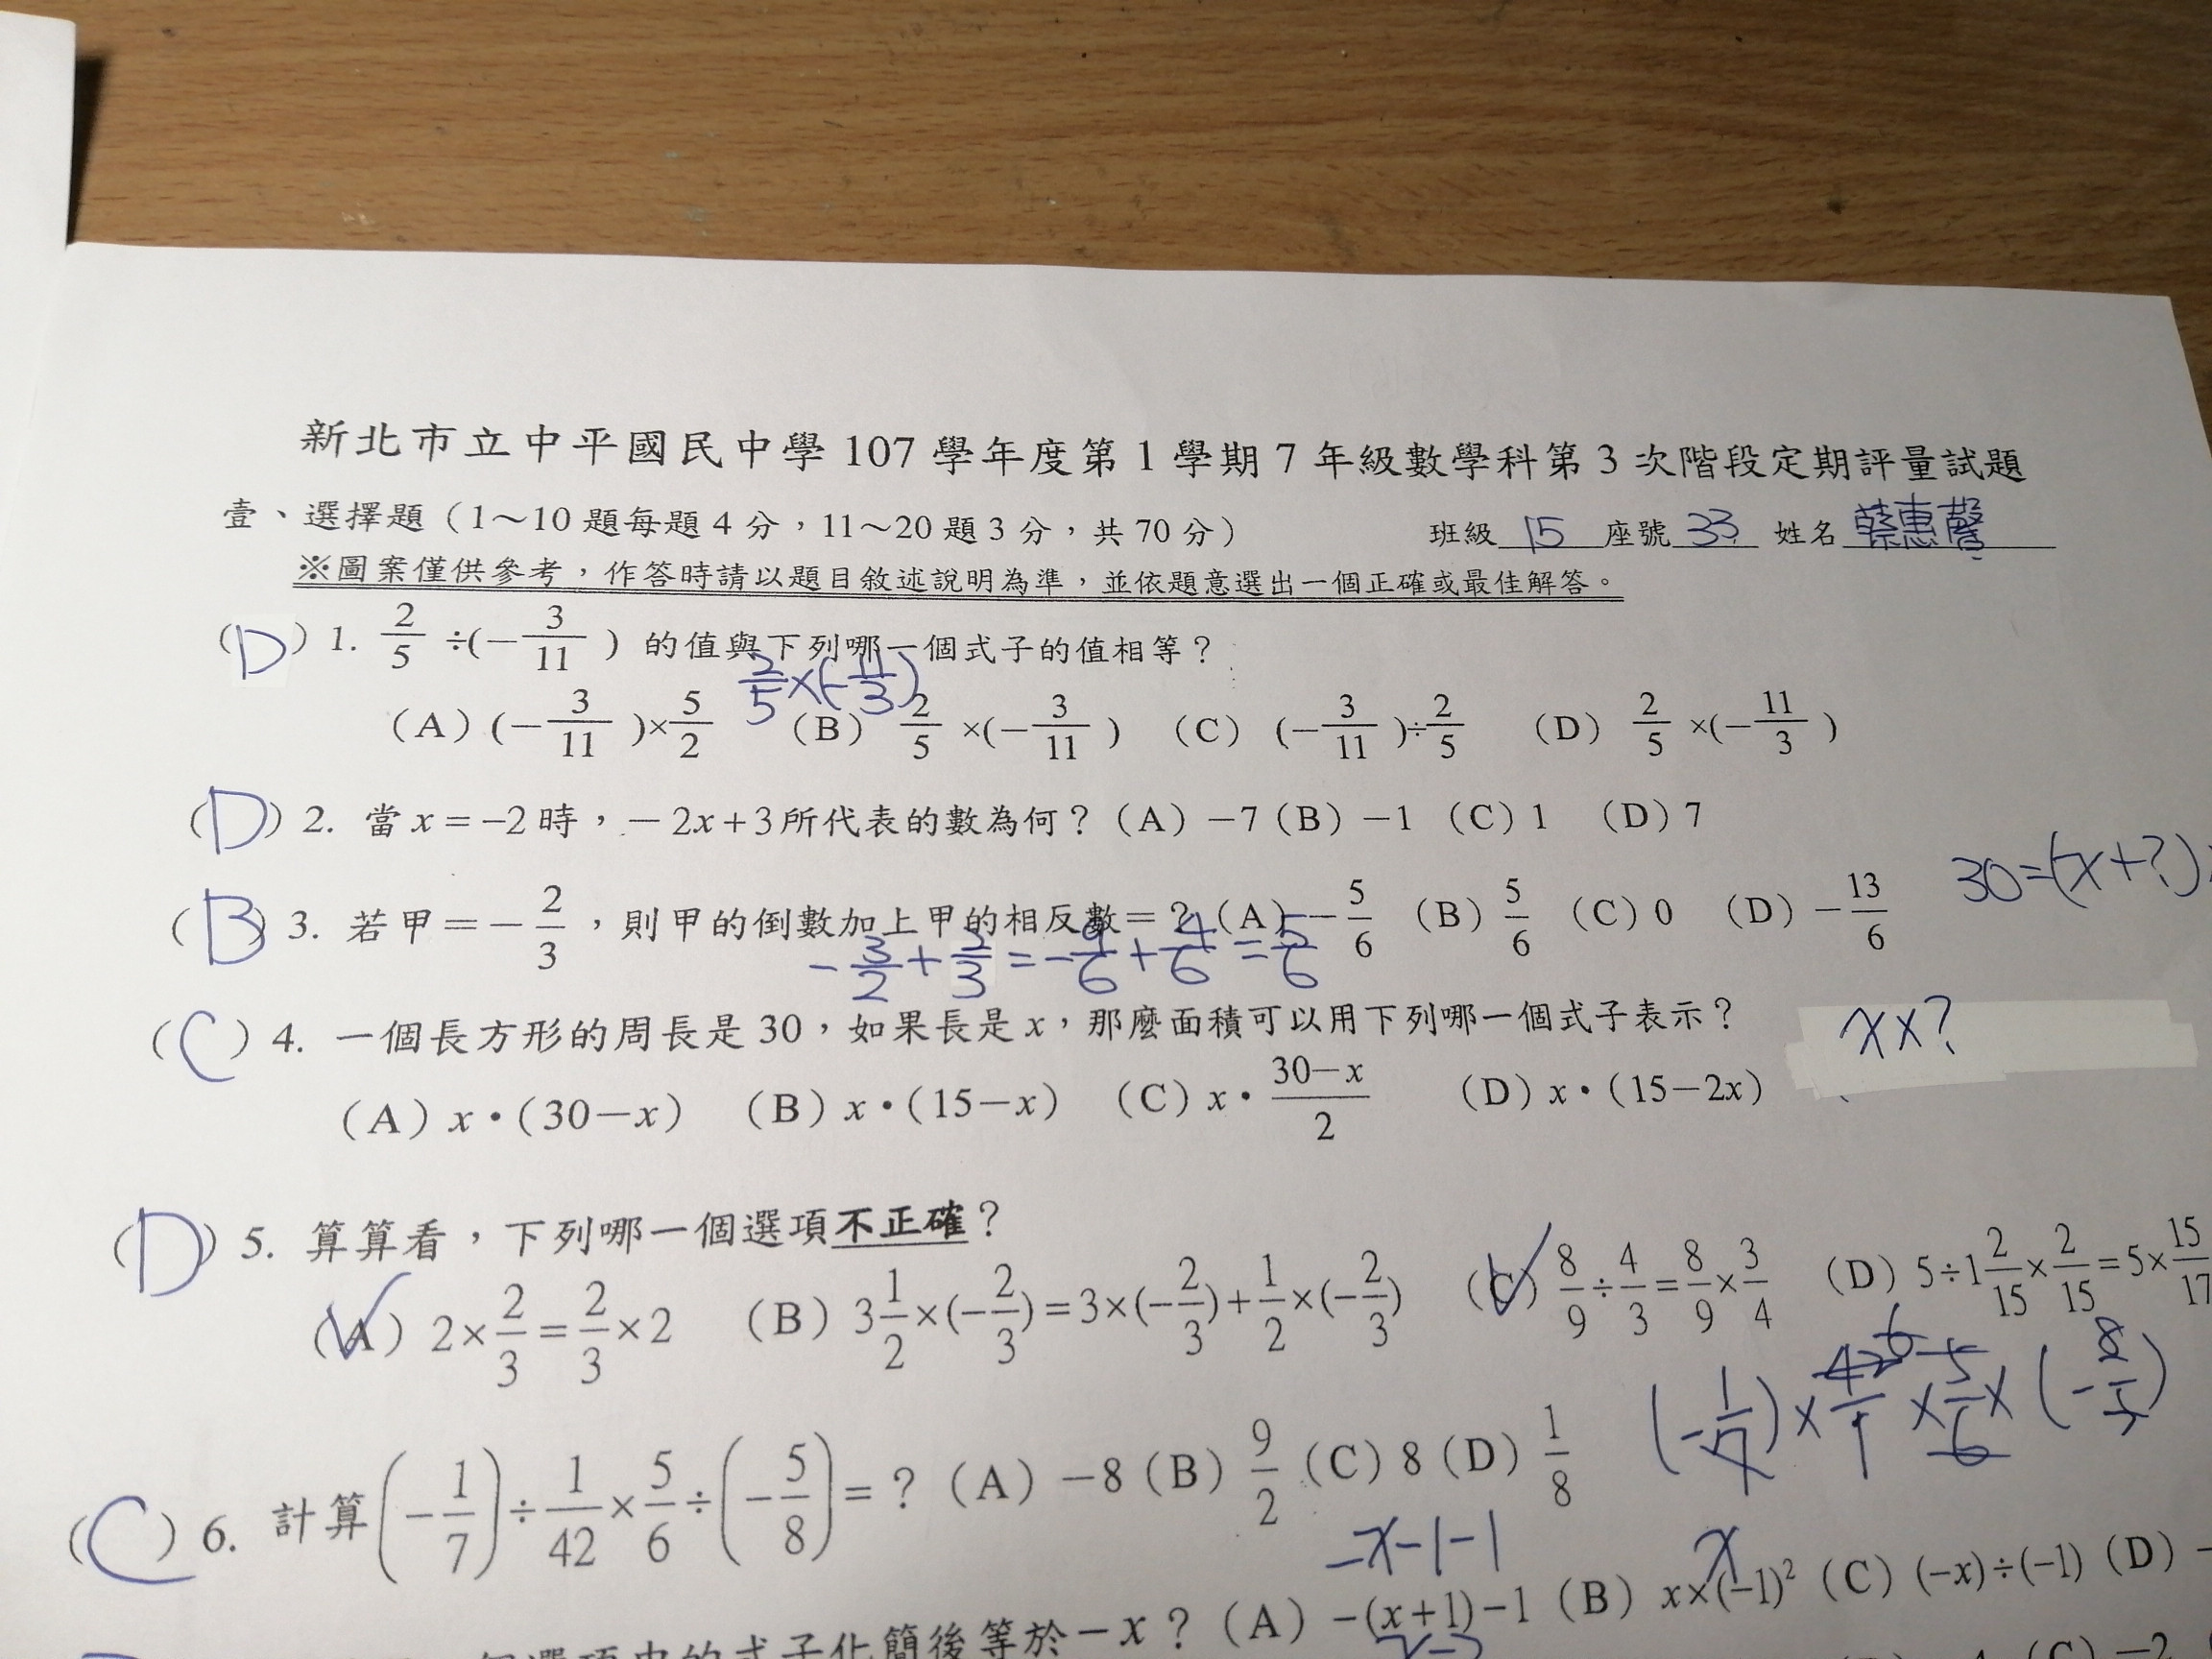 新北市立中平國民中學 107 學年度第 1 學期 7 年級數學科第 3 次階段定期評量試題
壹、選擇題（1～10 題每題 4 分，11～20 題 3 分，共 70 分） 班級 15 座號 33 姓名 蔡惠馨
※圖案僅供參考，作答時請以題目敘述說明為準，並依題意選出一個正確或最佳解答。
（D）1. 2/5 ÷(－3/11) 的值與下列哪一個式子的值相等？
2/5×(-11/3)
（A）(－3/11)×5/2 （B）2/5×(－3/11) （C）(－3/11)÷2/5 （D）2/5×(－11/3)
（D）2. 當 x＝−2 時，－2x＋3所代表的數為何？（A）－7（B）－1 （C）1 （D）7
30=(x+?)
（B）3. 若甲＝－2/3，則甲的倒數加上甲的相反數＝？（A）－5/6 （B）5/6 （C）0 （D）－13/6
-3/2+2/3=-9/6+4/6=5/6
（C）4. 一個長方形的周長是 30，如果長是 x，那麼面積可以用下列哪一個式子表示？
x×?
（A）x·（30－x） （B）x·（15－x） （C）x·(30－x)/2 （D）x·（15－2x）
（D）5. 算算看，下列哪一個選項不正確？
（A）2×2/3＝2/3×2 （B）3 1/2×(－2/3)＝3×(－2/3)＋1/2×(－2/3) （C）8/9÷4/3＝8/9×3/4 （D）5÷1 2/15×2/15＝5×15/17
(-1/7)×42/1×5/6×(-8/5)
6
（C）6. 計算(－1/7)÷1/42×5/6÷(－5/8)＝？（A）－8（B）9/2（C）8（D）1/8
-x-1-1 x
個選項中的式子化簡後等於－x？（A）−(x＋1)−1（B）x×(−1)²（C）(−x)÷(−1)（D）